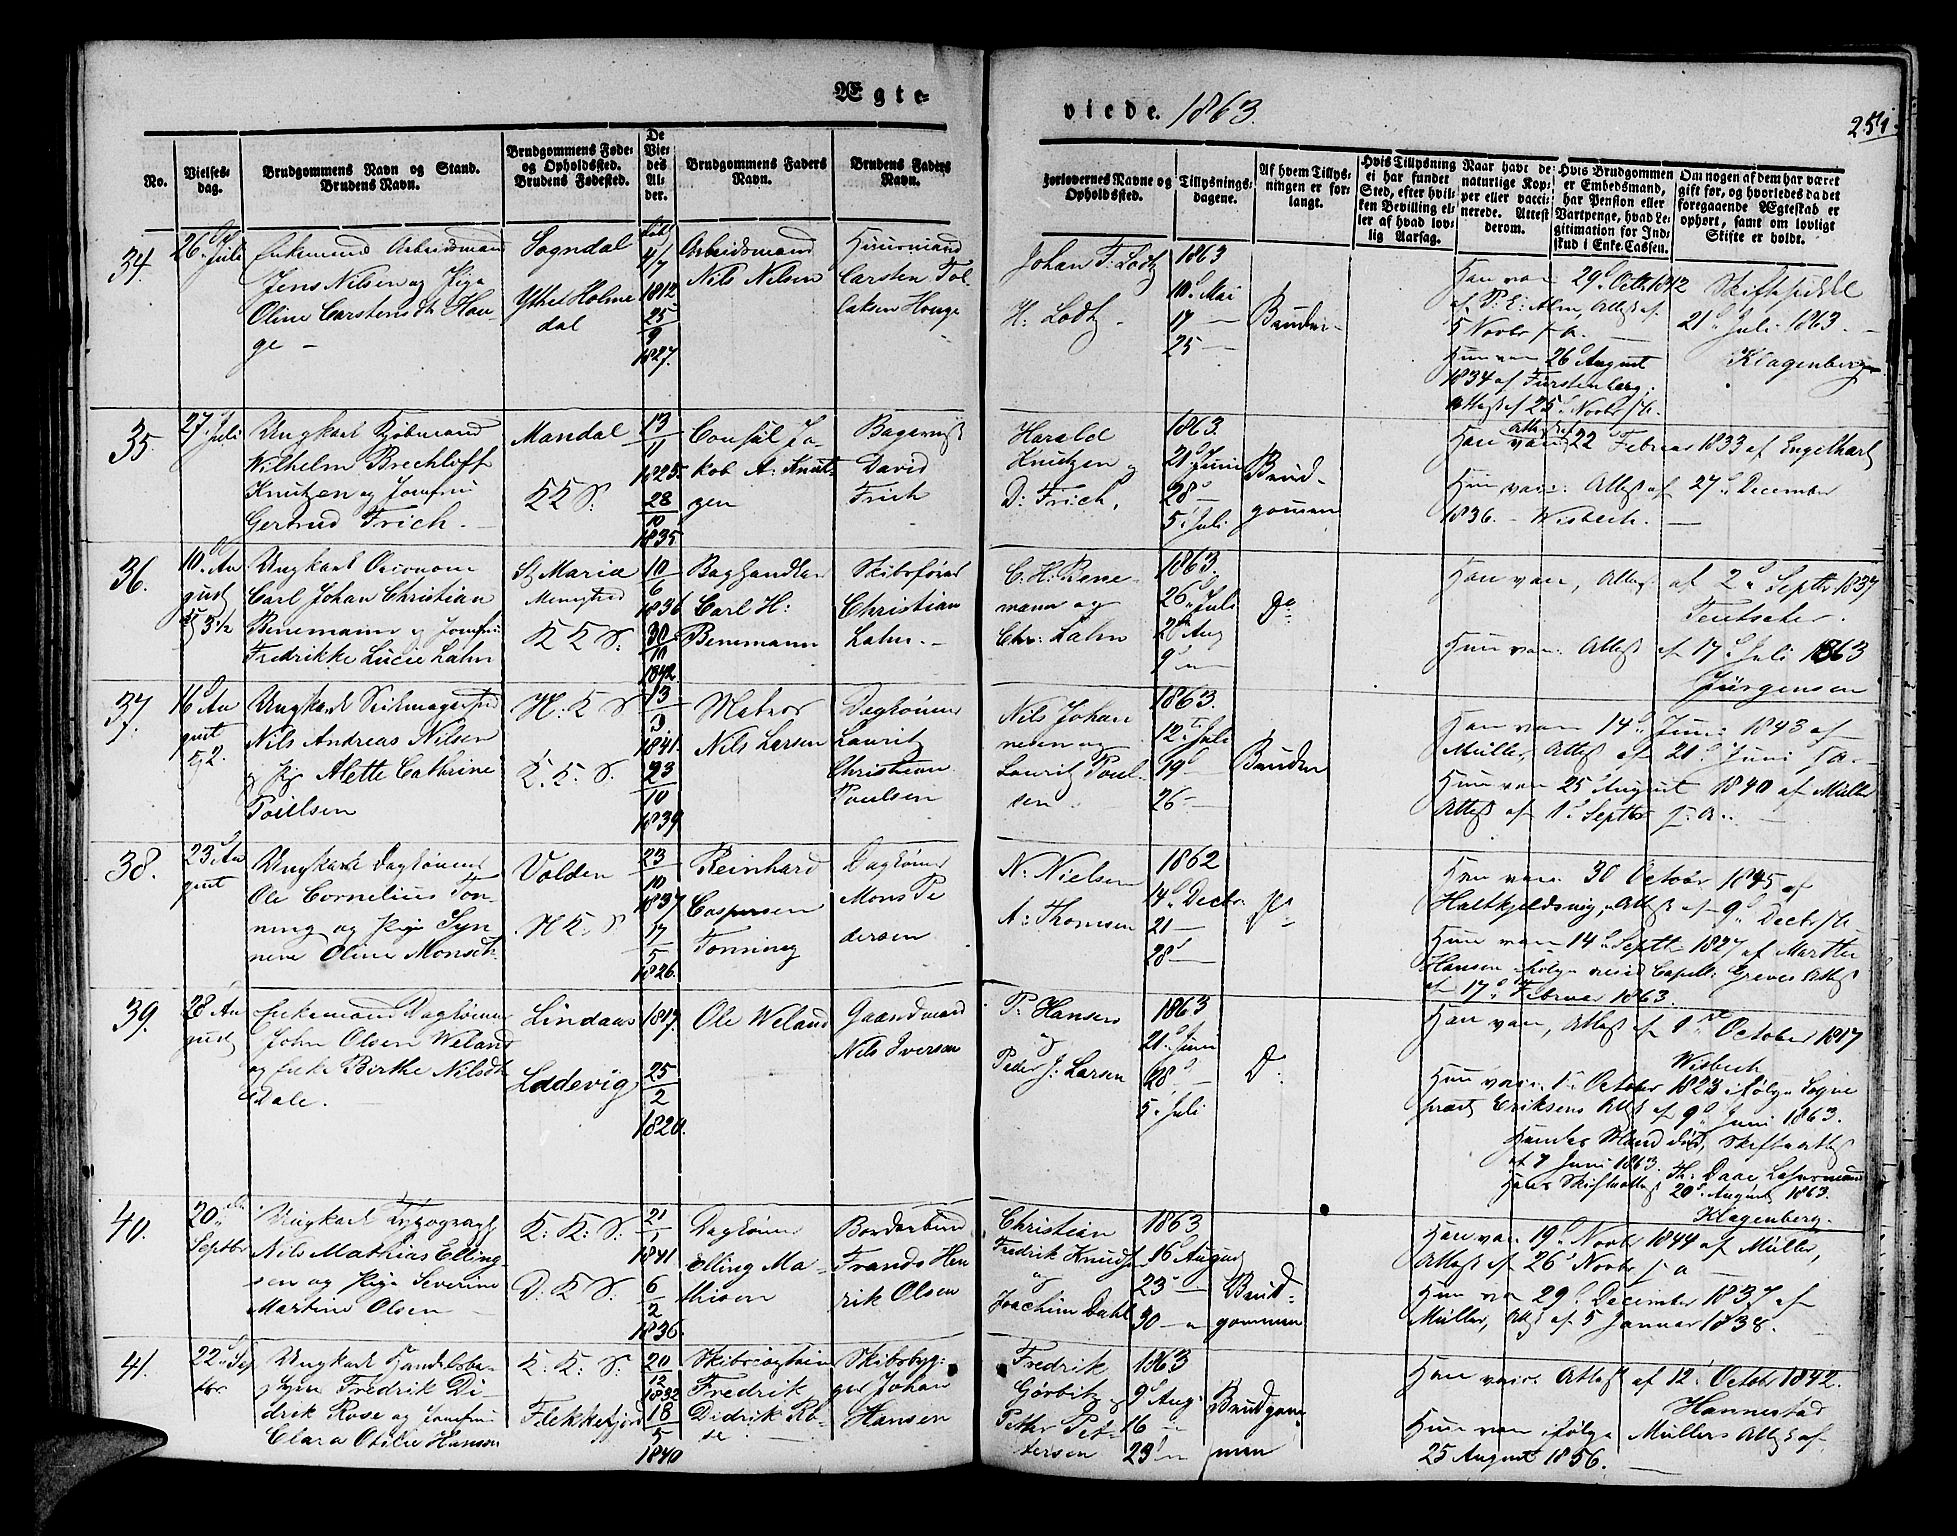 Ægte-
viede. 1863.
251.
No.
Vielses-
dag.
Brudgommens Navn og Stand.
Brudens Navn.
Brudgommens Føde-
og Opholdssted.
Brudens Fødested.
De
Vie-
des
Al-
der.
Brudgommens Faders
Navn.
Brudens Faders
Navn.
Forlovernes Navne og
Opholdssted.
Tillysnings-
dagene.
Af hvem Tillys-
ningen er for-
langt.
Hvis Tillysning
ei har fundet
Sted, efter hvil-
ken Bevilling el-
ler af hvad lov-
lig Aarsag.
Naar havt de
naturlige Kop-
per eller vacci-
nerede. Attest
derom.
Hvis Brudgommen
er Embedsmand,
har Pension eller
Vartpenge, hvad Le-
gitimation for Ind-
skud i Enke-Cassen.
Om nogen af dem har været
gift før, og hvorledes da det
foregaaende Ægteskab er
ophørt, samt om lovligt
Skifte er holdt.
34.
26 Juli
Enkemand Arbeidsmand
Jens Nilsen og Pige
Oline Carstensdt. Hau-
ge -
Sogndal
Ythet Holme
dal
4/7
1812
25/9
1827.
Arbeidsmand
Nils Nilsen
Huusmand
Carsten Tol-
laksen Houge
Johan F. Lodtz
H. Lodtz -
1863
10 Mai
17 -
25 -
Bruden
Han vac. 29 Octb. 1812
af P. E. Alm, Attest af
5 Novbr s. a.
Hun vac. 26 August
1834 af Fürstenberg.
Attest af 25 Novbr s. a.
Skifteseddel
21 Juli 1863.
Klagenberg
35.
27 Juli
Ungkarl Kjøbmand
Wilhelm Brechloff
Knutzen og Jomfru
Gertrud Frich. -
Mandal
K K S.
13/11
1825.
28/10
1835
Consul Ja-
kob A. Knut-
zen
Bagermst
David
Frich
Harald
Knutzen og
D. Frich.
1863.
21 Juni
28 -
5 Juli
Brud-
gommen
Han vac. Attest af 22 Februar 1833 af Engelhart
Hun vac. Attest af 27 December
1836. - Wisbech. -
36.
10 Au
gust
Ungkarl Oeconom
Carl Johan Christian
Benemann og Jomfru
Fredrikke Lucie Lahn
St Maria
Menighed
K K S.
10/6
1836
30/11
1842.
Boghandler
Carl H.
Benemann
Skibsfører
Christian
Lahn. -
C. H. Bene-
mann og
Chr. Lahn
1863.
26 Juli
2 Aug
9 -
Do
Han vac, Attest af 2 Septbr 1837
Hun vac. Attest af 17 Juli 1863
Jürgensen
37.
16 Au
gust
Ungkarl Seilmagersvend
Nils Andreas Nilsen
og Pige Alette Cathrine
Poulsen
N. K. S.
K. K. S.
13/3
1841.
23/10
1839
Matros
Nils Larsen
Dagtømmer
Lauritz
Christian
Poulsen
Nils Johan
nesen og
Lauritz Poul-
sen.
1863.
12 Juli
19 -
26 -
Bruden
Han vac. 14 Juni 1843 af
Müller, Attest af 21 Juni s. a. -
Hun vac 25 August 1840 af Müller
Attest af 1 Septbr s. a. -
38.
23 Au
gust
Ungkarl Dagtømmer
Ole Cornelius Ton-
ning og Pige Syn-
neve Oline Monsdt.
Volden
N K. S
23/10
1837
17/5
1826.
Reinhard
Caspersen
Tonning
Dagtømmer
Mons Pe
dersen
N. Nielsen
A. Thomsen
1862
14 Decbr.
21 -
28 -
Do
Han vac. 30 October 1845 af
Holtkjeldsvig, Attest af 9 Decbr s. a.
Hun vac 14 Septbr 1827 af Marthe
Hansen ifølge resid Capell. Greves Attest
af 17 Februar 1863.
39.
28 Au
gust
Enkemand Dagtømmer
John Olsen Weland
og Enke Birthe Nilsdt.
Dale. -
Lindaas
Loddevig
1817.
25/2
1820.
Ole Weland
Gaardmand
Nils Iversen
P. Hansen
og
Peder J. Larsen
1863
21 Juni
28 -
5 Juli
D.
Han vac, Attest af 1 October 1817
Wisbech
Hun vac. 1 October 1823 ifølge Sogne
præst Eriksens Attest af 9 Juni 1863.
Hendes Mand død, Skifteattest
af 7 Juni 1863. Th. Daae Lehnsmand
Hans Skifteattest 20 August 1863.
Klagenberg.
40.
20
Septbr
Ungkarl Typograph
Nils Mathias Elling-
sen og Pige Severine
Martine Olsen -
K. K. S.
D. K. S.
21/1
1841
6/2
1836.
Dagtømmer
Elling Ma-
thisen
Bordarbeid
Frands Hen
rik Olsen
Christian
Fredrik Knudsen
og
Joachim Dahl
1863
16 August
23 -
30 -
Brud-
gommen
Han vac. 19 Novbr 1844 af Müller,
Attest af 26 Novbr s. a -
Hun vac 29 December 1837 af
Müller, Attest af 5 Januar 1838.
41.
22 Sep
tbr
Ungkarl Handelsbe-
styrer Fredrik Di-
drik Rose og Jomfru
Clara Otilie Hansen
K. K. S.
Flekkefjord
20/12
1832
18/5
1840
Skibscaptein
Fredrik
Didrik Ro-
se. -
Skibsbyg-
ger Johan
Hansen
Fredrik
Görbitz og
Petter Pet-
tersen
1863
9 Aug
16 -
23 -
Brudgom-
men
Han vac. Attest af 12 Octobr 1842.
Hannestad
Hun vac ifølge Müllers Attest af
25 August 1856. -